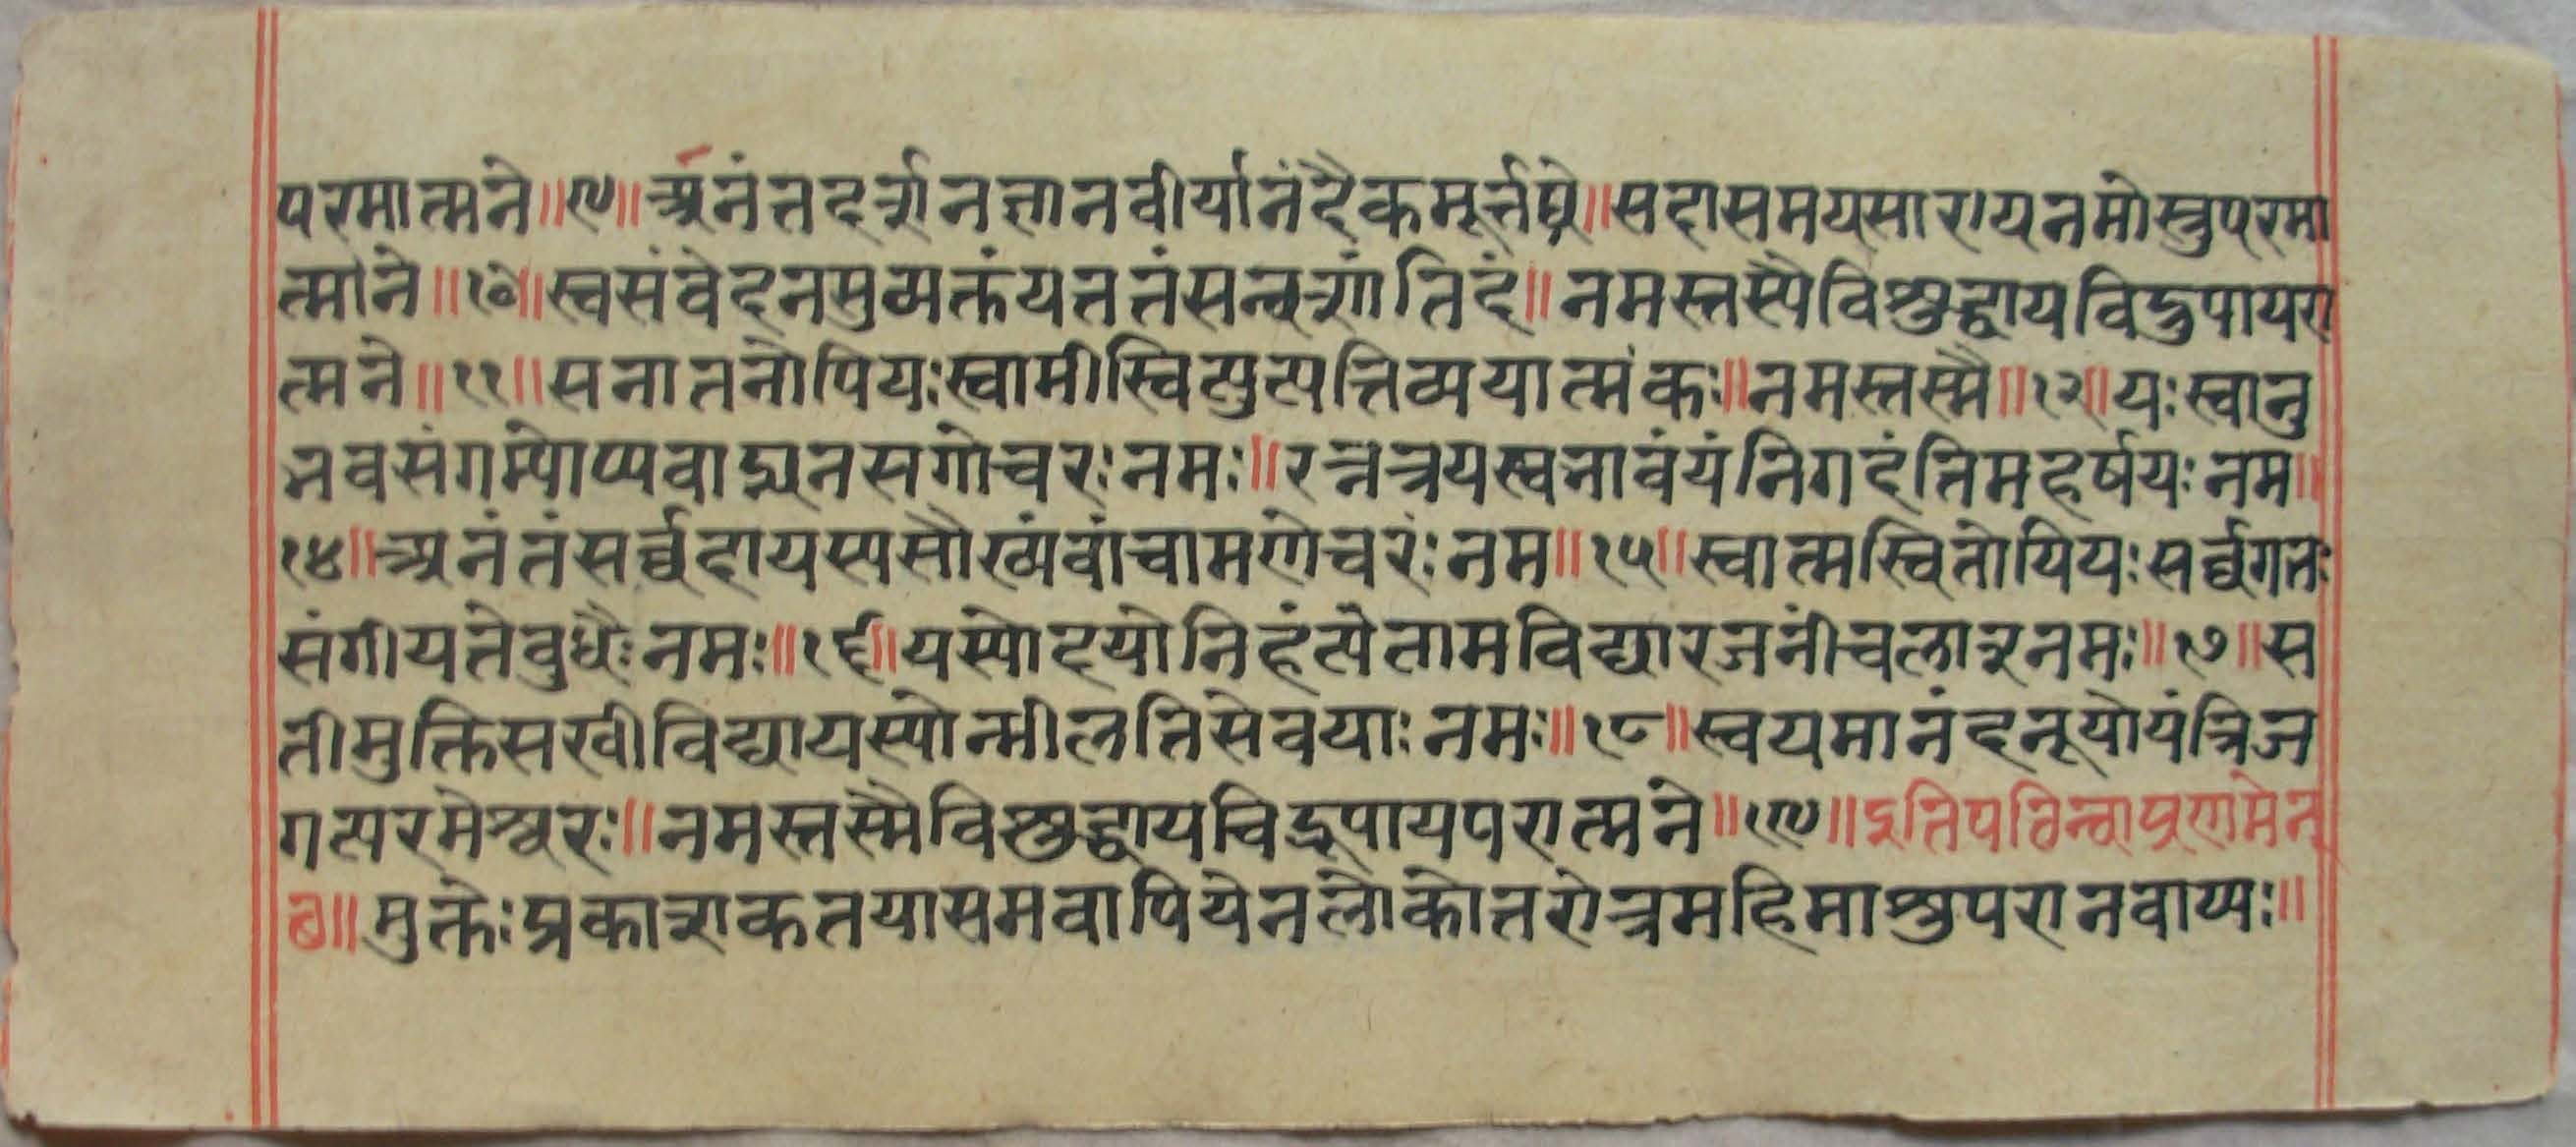 परमात्मने॥९॥अनंतदर्शनज्ञानवीर्यानंदैकमूर्त्तये॥सदासमयसारायनमोस्तुपरमा
त्मने॥१०॥स्वसंवेदनमुव्यक्तंयत्ततंसन्वशांतिदं॥नमस्तस्मैविशुद्धायविद्रुपायपरा
त्मने॥११॥सनातनोपियःस्वामीस्थित्युत्पत्तिव्ययात्मकः॥नमस्तस्मै॥१२॥यःस्वानु
भवसंगम्योप्यवाङ्मनसगोचरःनमः॥रत्नत्रयस्वभावंयंनिगदंतिमहर्षयःनम॥
१४॥अनंतंसर्व्वदायस्यसौख्यंवाचामगोचरंःनम॥१५॥स्वात्मस्थितोयियःसर्व्वगतः
संगीयतेवुधैःनमः॥१६॥यस्योदयोनिहंत्येतामविद्यारजनींचलात्रनमः॥१७॥स
तीमुक्तिसखीविद्यायस्योन्मीलतिसेवयाःनमः॥१८॥स्वयमानंदभूयोयंत्रिज
गत्परमेश्वरः॥नमस्तस्मैविशुद्धायचिद्रूपायपरात्मने॥१९॥इतिपठित्वाप्रणमेत्
छ॥मुक्तेःप्रकाशकतयासमवापियेनलोकोत्तरोत्रमहिमाशुपरानवाय्यः॥